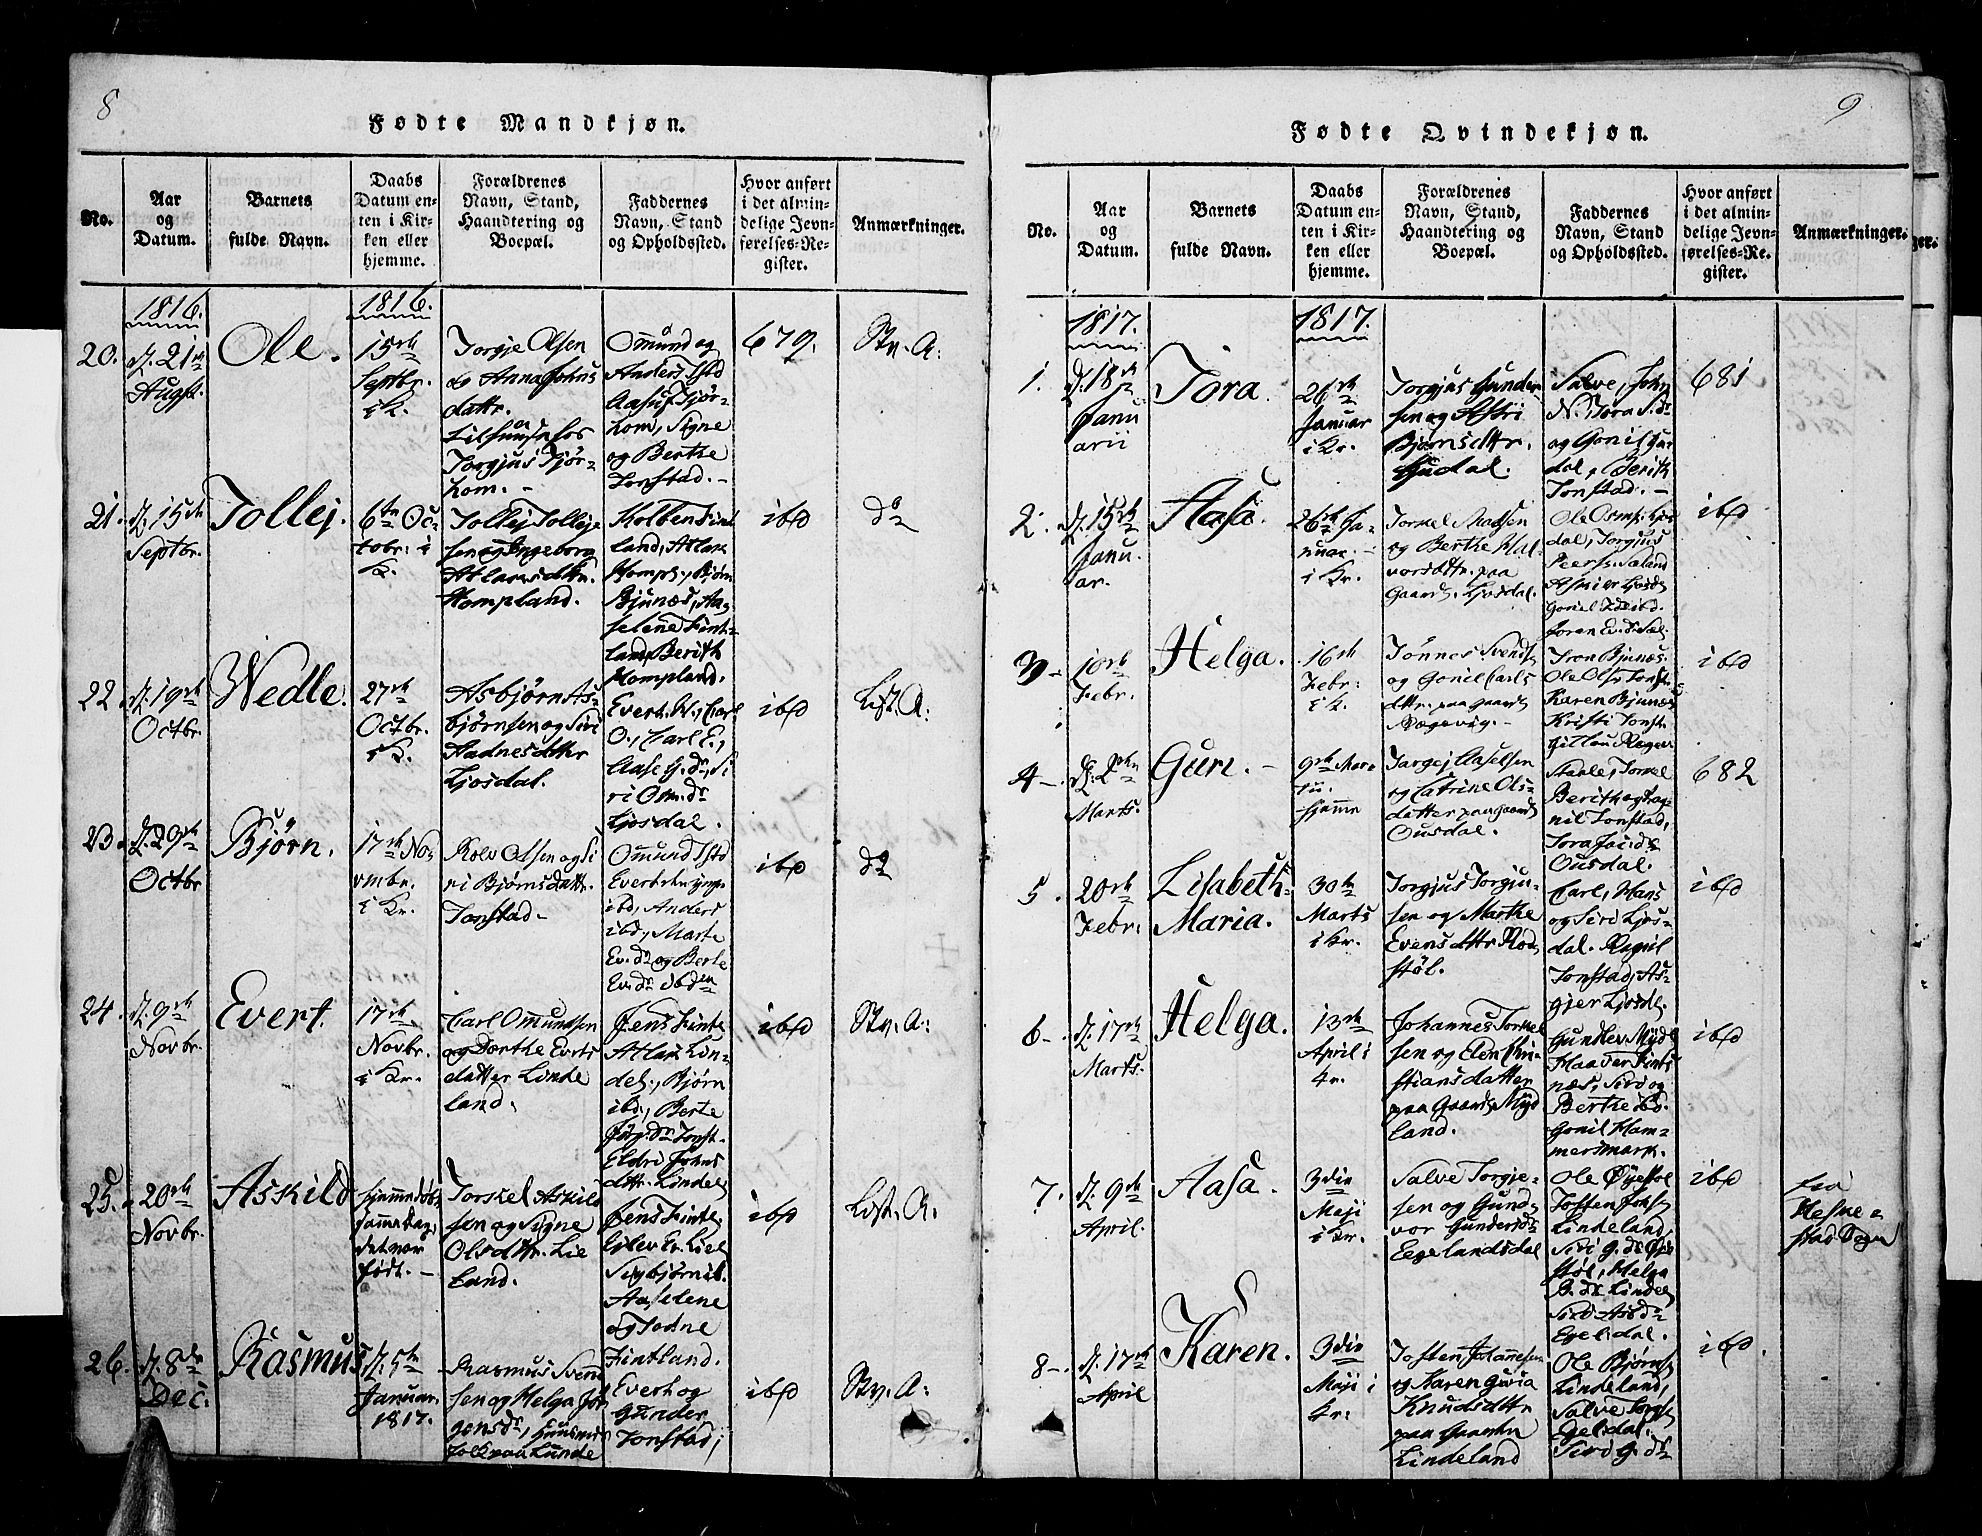 8
Fødte Mandkjøn.
No.
Aar
og
Datum.
Barnets
fulde Navn.
Daabs
Datum en-
ten i Kir-
ken eller
hjemme.
Forældrenes
Navn, Stand,
Haandtering og
Boepæl.
Faddernes
Navn, Stand
og Opholdssted.
Hvor anført
i det almin-
delige Jevn-
førelses-Re-
gister.
Anmærkninger.
1816.
1816.
20.
d. 21de
Augst.
Ole.
15de
Septbr.
i K.
Torgje Olsen
og Anna Johns
dattr.
Torgjus Tjør-
hom. -
Omund og
Anders Tstd
Aasuf Tjør-
hom, Signe
og Berthe
Tonstad. -
679.
Stv. A:
21.
d. 15de
Septbr.
Tollej.
6te Oc-
tobr. i
K.
Tollej Tolleje
sen og Ingeborg
Atlaksdttr.
Hompland.
Kolben Fint
land, Atlak
Hompl., Bjørn
Bjunæs, Aa-
selene Fint-
land, Berith
Hompland.
ibd
do
22.
d. 19de
Octbr.
Wedle.
27de
Octbr.
i K.
Asbjørn As-
bjørnsen og Siri
Aadnesdatter
Ljosdal.
Evert W., Carl
O., Carl E.,
Aase G.dr, Si
ri Om.dr
Ljosdal.
ibd
List. A:
23.
d. 29de
Octbr
Bjørn.
17de No
vmbr.
i Kr.
Rolv Olsen og Si
ri Bjørnsdattr.
Tonstad-
Omund Tstd
Evert
ibd, Anders
ibd, Marte
Ev.dr og Berte
Ev.dr ibden
ibd
do
24.
d. 9de
Novbr.
Evert.
17de
Novbr.
i Kr.
Carl Omundsen
og Dorthe Everts
datter Linde
land.
Jens Finte
Atlak Lin-
del., Bjørn
ibd., Berte
Jørg.dr Tonst-
Eldri Johns
dttr. Lindel
ibd
Stv. A:
25.
20de
Novbr.
Askild
hjemmedøbt
samme Dag,
det var
født. -
Torskel Askild
sen og Signe
Olsdttr. Lie
land.
Jens Finte
Ejlev Er. Liel
Sigbjørn ib.
Aaselene
og Todne
Fintland.
ibd
List. A.
26.
d. 8de
Dec.
Rasmus
d. 5te
Januar.
1817.
Rasmus Svend
sen og Helga Jør
gensdr, Huusmds
folk paa Lunde
Evert og
Gunder
Tonstad,
ibd
Stv. A:
9
Fødte Qvindekjøn.
No.
Aar
og
Datum.
Barnets
fulde Navn.
Daabs
Datum en-
ten i Kir-
ken eller
hjemme.
Forældrenes
Navn, Stand,
Haandtering og
Boepæl.
Faddernes
Navn, Stand
og Opholdssted.
Hvor anført
i det almin-
delige Jevn-
førelses-Re-
gister.
Anmærkninger.
1817.
1817.
1.
d. 18de
Janu
arii
Tora.
26de
Januar
i Kr.
Torgjus Gunder
sen og Astri
Bjørnsdttr.
Gudal.
Salve, John
N., Tora S.dr
og Gonil Gu
dal, Berith
Tonstad. -
681
2.
d. 15de
Janu.
ar.
Aasa.
26de Ja-
nuar. -
i Kr.
Torkel Madsen
og Berthe Hal-
vorsdttr. paa
Gaarden Ljosdal.
Ole Osmp. Ljos
dal, Torgjus
Peers. Sæland
Asgier Ljosd.
Gonil T.dr ibd.
Joren Ev.dr. Sæl.
ibd
3-
10de
Febr.
Helga.
16de
Febr:
i K.
Tønnes Svends
og Gonil Carls
dttr. paa Gaarden
Rægevig.-
Tron Bjunæs.
Ole Ols. Tonst.
Karen Bjunæs
Kristi Tonst.
ibd
4-
d. 2den
Marts.
Guri. -
9de Mar
tii.
hjemme
Targej Aaselsen
og Catrine Ols-
datter paa Gaarden
Ousdal.
Staale, Torkel
Berith og Rag-
nil Tonstad,
Tora Jac.dr
Ousdal.
682
5.
20de
Febr.
Lisabeth
Maria.
30te
Marts
i Kr.
Torgjus Torgju-
sen og Marthe
Evensdttr Rød
støl.
Carl, Hans
og Siri Ljos-
dal. Ragnil
Tonstad, As-
gjer Ljosdl.
ibd
6-.
d. 17de
Marts.
Helga.
13de
April i
Kr.
Johannes Torkel
sen og Elen Chri-
stiansdatter
paa Gaarden Myd
land.
Gunder Mydl
Haaver Fints
næs, Siri og
Berthe ibd.
Gonil Ham-
mersmark.
ibd
7.
d. 9de
April.
Aasa.
3die
Maji
i Kr.
Salve Torgje-
sen og Gund-
vor Gundersdr
Eegelandsdal
Ole Øyestøl
Tosten Johs.
Lindeland,
Siri G.dr Øye
støl, Helga
B.dr Lindel
Siri Aas.dr
Egel.dal.
ibd
fra
Heske-
stad Sogn
8-.
d. 17de
April
Karen.
3die
Maji i
Kr:
Tosten Johannesen
og Karen Guria
Knudsdttr
paa Gaarden
Lindeland
Ole Bjørns.
Lindeland,
Salve Torgs.
Egel.dal.
Siri G.dr
ibd.